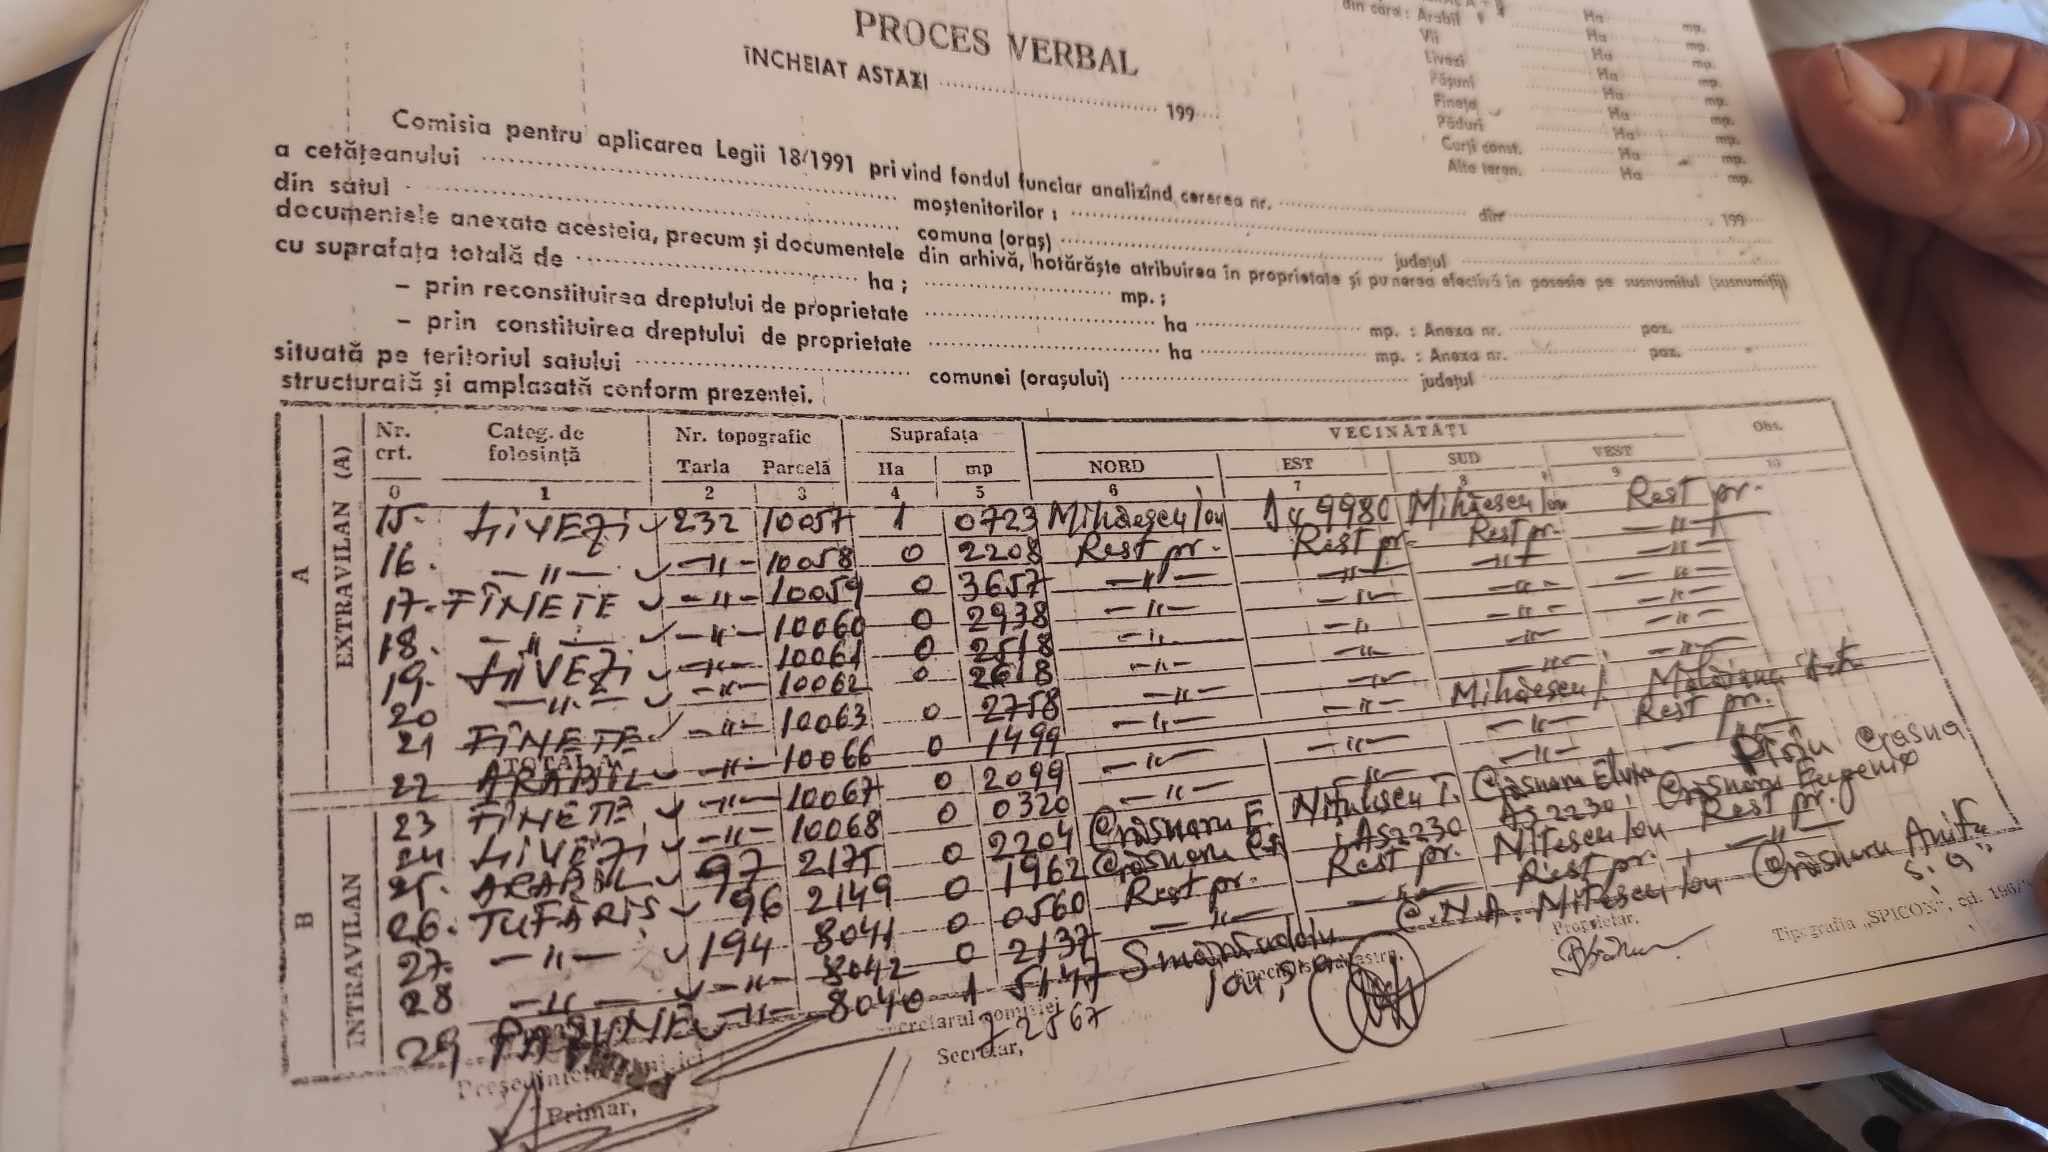 PROCES VERBAL
ÎNCHEIAT ASTAZI ............ 199....
din care : Arabil Ha mp.
Vii Ha mp.
Livezi Ha mp.
Pășuni Ha mp.
Finețe Ha mp.
Păduri Ha mp.
Curți const. Ha mp.
Alte teren. Ha mp.
Comisia pentru aplicarea Legii 18/1991 privind fondul funciar analizînd cererea nr. ............ din ............ 199
a cetățeanului ............ moștenitorilor : ............
din satul ............ comuna (oraș) ............ județul ............
documentele anexate acesteia, precum și documentele din arhivă, hotărăște atribuirea în proprietate și punerea efectivă în posesie pe susnumitul (susnumiții)
cu suprafața totală de ............ ha ; ............ mp. ;
– prin reconstituirea dreptului de proprietate ............ ha ............ mp. : Anexa nr. ............ poz. ............
– prin constituirea dreptului de proprietate ............ ha ............ mp. : Anexa nr. ............ poz. ............
situată pe teritoriul satului ............ comunei (orașului) ............ județul ............
structurată și amplasată conform prezentei.
A EXTRAVILAN (A)
B INTRAVILAN
Nr. crt. Categ. de folosință Nr. topografic Suprafața VECINĂTĂȚI Obs.
Tarla Parcelă Ha mp NORD EST SUD VEST
0 1 2 3 4 5 6 7 8 9 10
15. LIVEZI 232 10057 1 0723 Mihăescu Ion 9980 Mihăescu Ion Rest pr.
16. –"– –"– 10058 0 2208 Rest pr. Rest pr. Rest pr. –"–
17. FÎNEȚE –"– 10059 0 3657 –"– –"– –"– –"–
18. –"– –"– 10060 0 2938 –"– –"– –"– –"–
19. LIVEZI –"– 10061 0 2518 –"– –"– –"– –"–
20 –"– –"– 10062 0 2618 –"– –"– –"– –"–
21 FÎNEȚE –"– 10063 0 2758 –"– –"– Mihăescu I.
TOTAL A
22 ARABIL –"– 10066 0 1499 –"– –"– –"– Rest pr.
23 FÎNEȚE –"– 10067 0 2099 –"– –"– –"– –"–
24 LIVEZI –"– 10068 0 0320 –"– –"–
25. ARABIL 97 2175 0 2204 Crăsnaru E. Nițulescu T. Crăsnaru Crasna
26. TUFĂRIȘ 96 2149 0 1962 Crăsnaru As 2230 As 2230 Crăsnaru Eugenia
27. –"– 194 8041 0 0560 Rest pr. Rest pr. Nițescu Ion Rest pr.
28 –"– –"– 8042 0 2137 –"– –"– Rest pr. –"–
29 PĂȘUNE –"– 8040 1 5147 C.N.A. Nițescu Ion Crăsnaru
Președintele comisiei
Primar,
Secretarul comisiei
Secretar,
Proprietar,
Tipografia „SPICON”, cd.